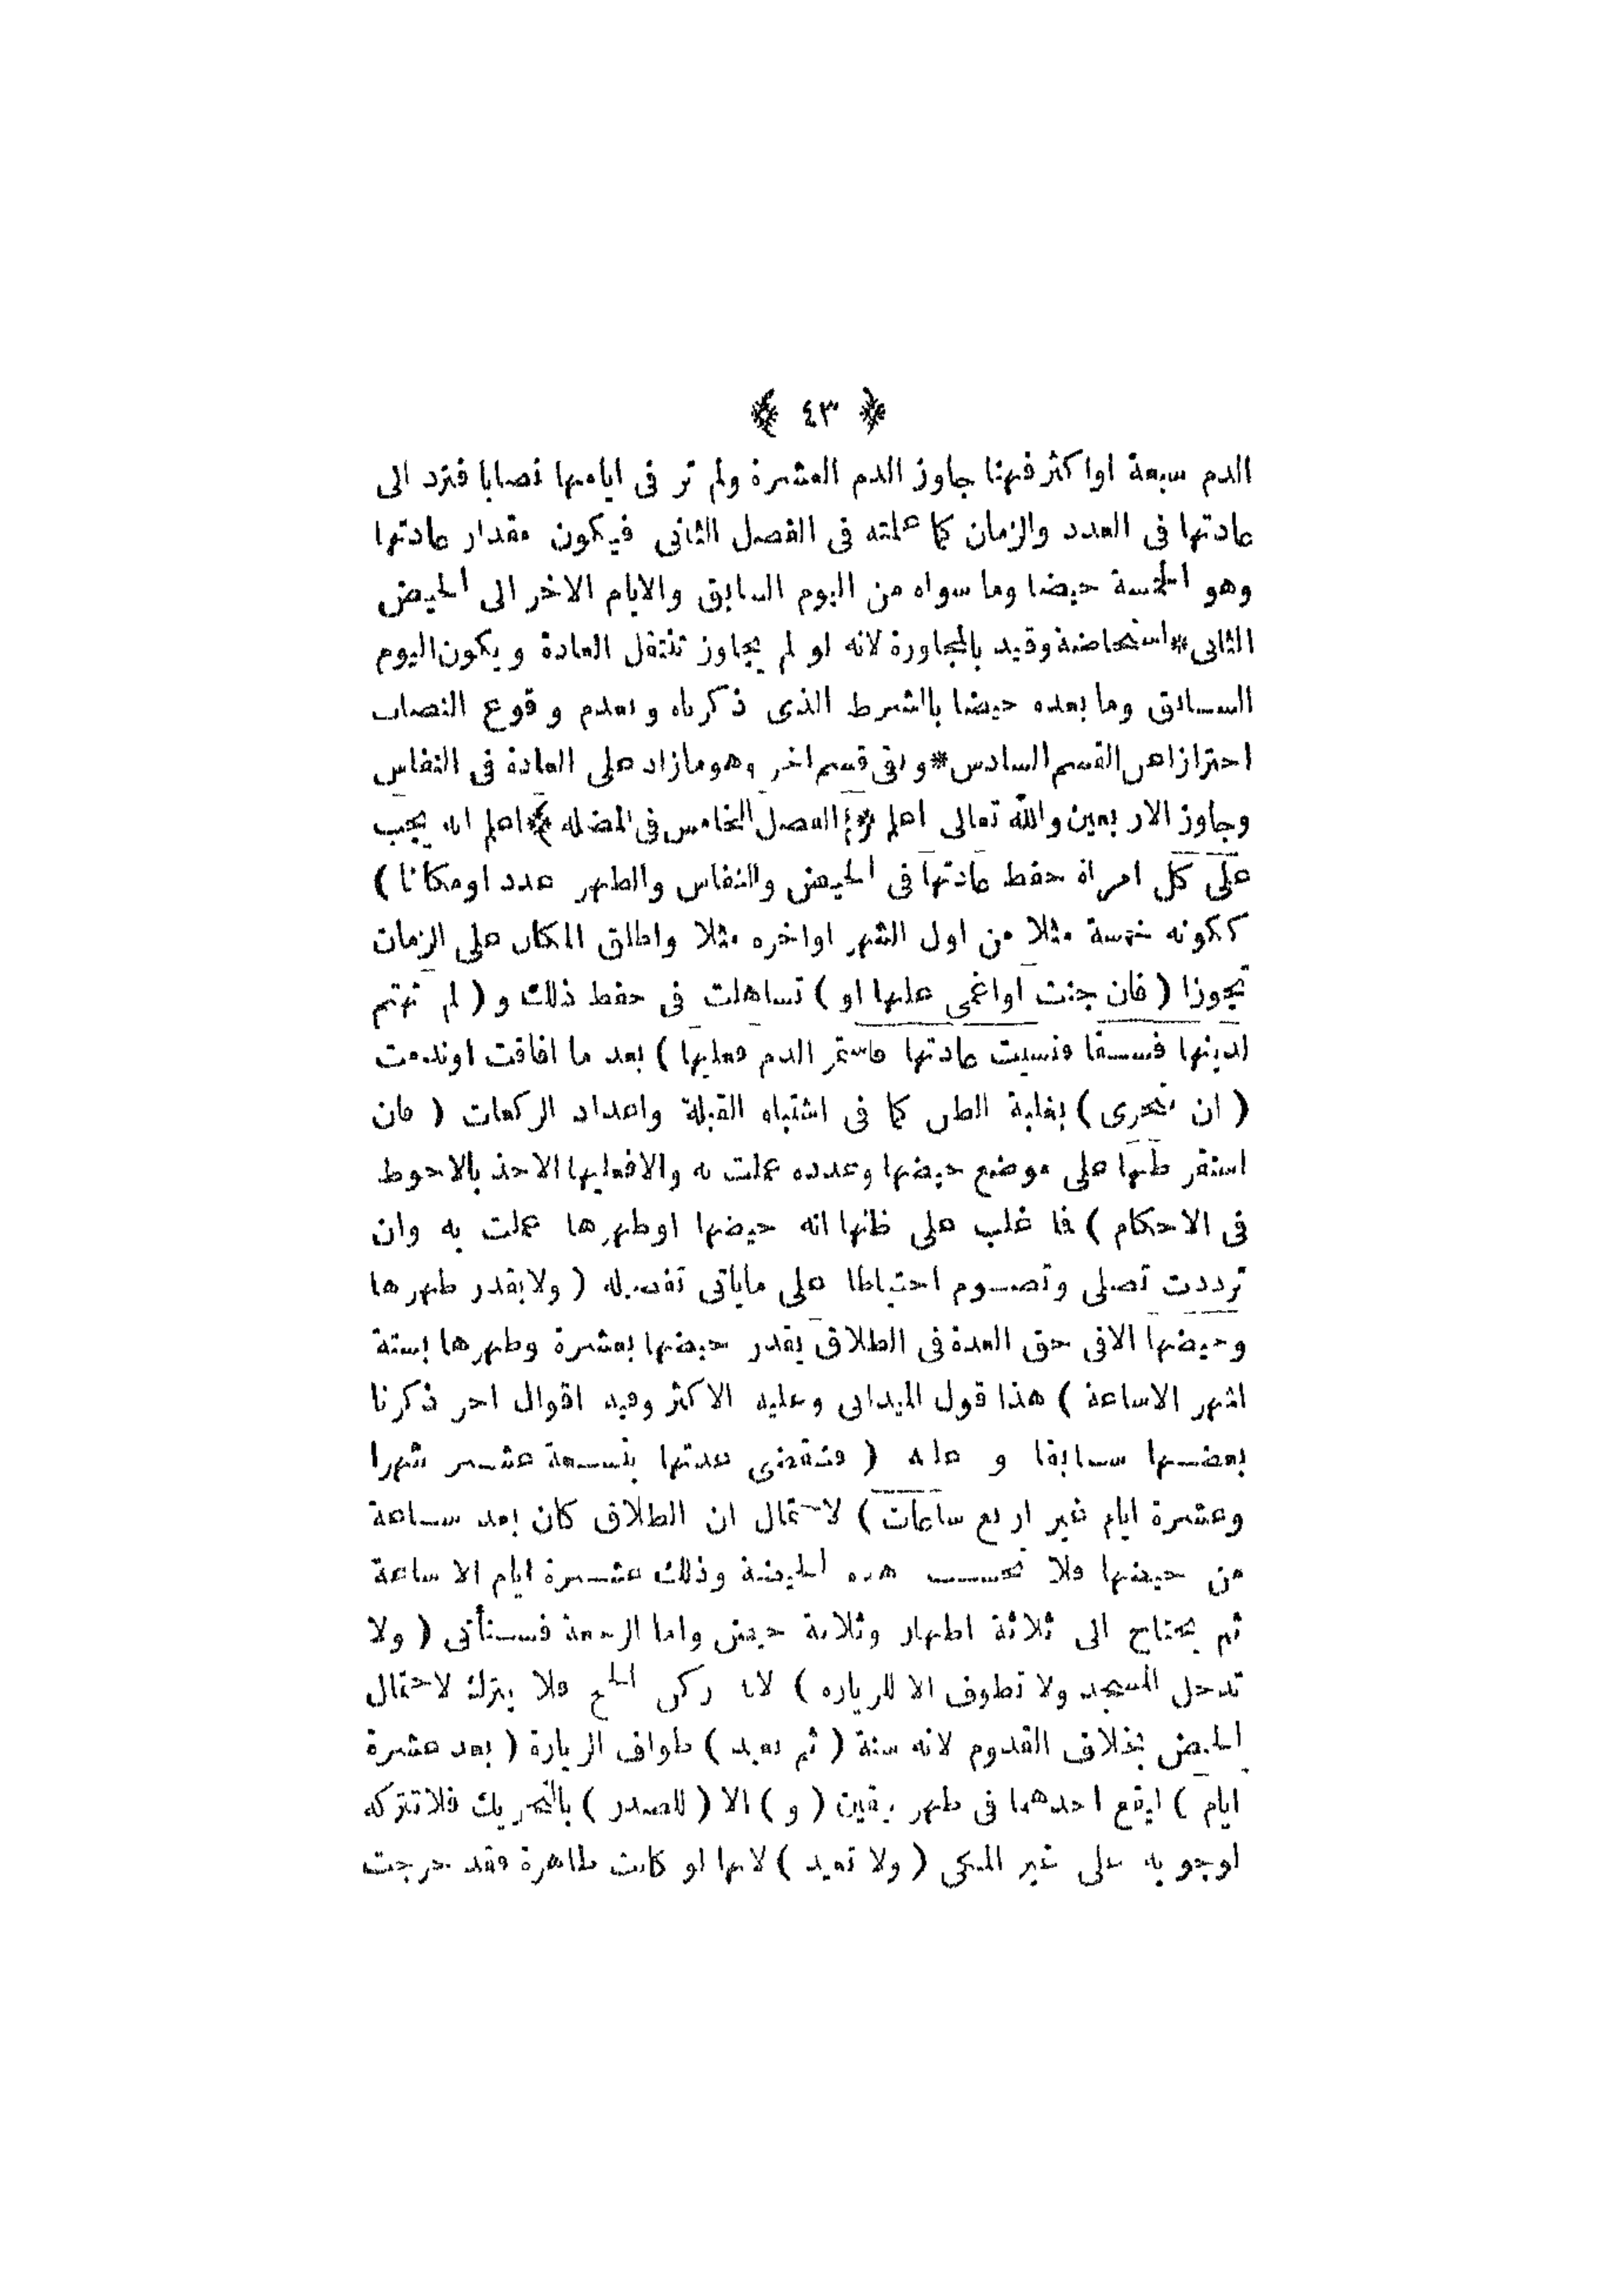 ﴿ ٤٣ ﴾
الدم سبعة اواكثر فهنا جاوز الدم العشرة ولم تر فى ايامها نصابا فترد الى
عادتها فى العدد والزمان كما علمته فى الفصل الثانى فيكون مقدار عادتها
وهو الخمسة حيضا وما سواه من اليوم السابق والايام الاخر الى الحيض
الثانى * استحاضة وقيد بالمجاورة لانه لو لم يجاوز تنتقل العادة ويكون اليوم
السابق وما بعده حيضا بالشرط الذى ذكرناه وبعدم وقوع النصاب
احترازا عن القسم السادس * وبقى قسم اخر وهو مازاد على العادة فى النفاس
وجاوز الاربعين والله تعالى اعلم ﴿ الفصل الخامس فى المضلة ﴾ اعلم انه يجب
على كل امراة حفظ عادتها فى الحيض والنفاس والطهر عددا ومكانا )
ككونه خمسة مثلا من اول الشهر اواخره مثلا واطلق المكان على الزمان
تجوزا ( فان جنت اواغمى عليها او ) تساهلت فى حفظ ذلك و ( لم تهتم
لدينها فسقا فنسيت عادتها فاستمر الدم فعليها ) بعد ما افاقت اوندمت
( ان تتحرى ) بغلبة الظن كما فى اشتباه القبلة واعداد الركعات ( فان
استقر ظنها على موضع حيضها وعدده عملت به والافعليها الاخذ بالاحوط
فى الاحكام ) فما غلب على ظنها انه حيضها اوطهرها عملت به وان
ترددت تصلى وتصوم احتياطا على ماياتى تفصيله ( ولايقدر طهرها
وحيضها الافى حق العدة فى الطلاق يقدر حيضها بعشرة وطهرها بستة
اشهر الاساعة ) هذا قول الميدانى وعليه الاكثر وفيه اقوال اخر ذكرنا
بعضها سابقا و عليه ( فتنقضى عدتها بتسعة عشر شهرا
وعشرة ايام غير اربع ساعات ) لاحتمال ان الطلاق كان بعد ساعة
من حيضها فلا تحسب هذه الحيضة وذلك عشرة ايام الا ساعة
ثم يحتاج الى ثلاثة اطهار وثلاثة حيض واما الرجعة فستأتى ( ولا
تدخل المسجد ولا تطوف الا للزيارة ) لانه ركن الحج فلا يترك لاحتمال
الحيض بخلاف القدوم لانه سنة ( ثم تعيد ) طواف الزيارة ( بعد عشرة
ايام ) ليقع احدهما فى طهر بيقين ( و ) الا ( للصدر ) بالتحريك فلاتتركه
لوجوبه على غير المكى ( ولا تعيد ) لانها لو كانت طاهرة فقد خرجت